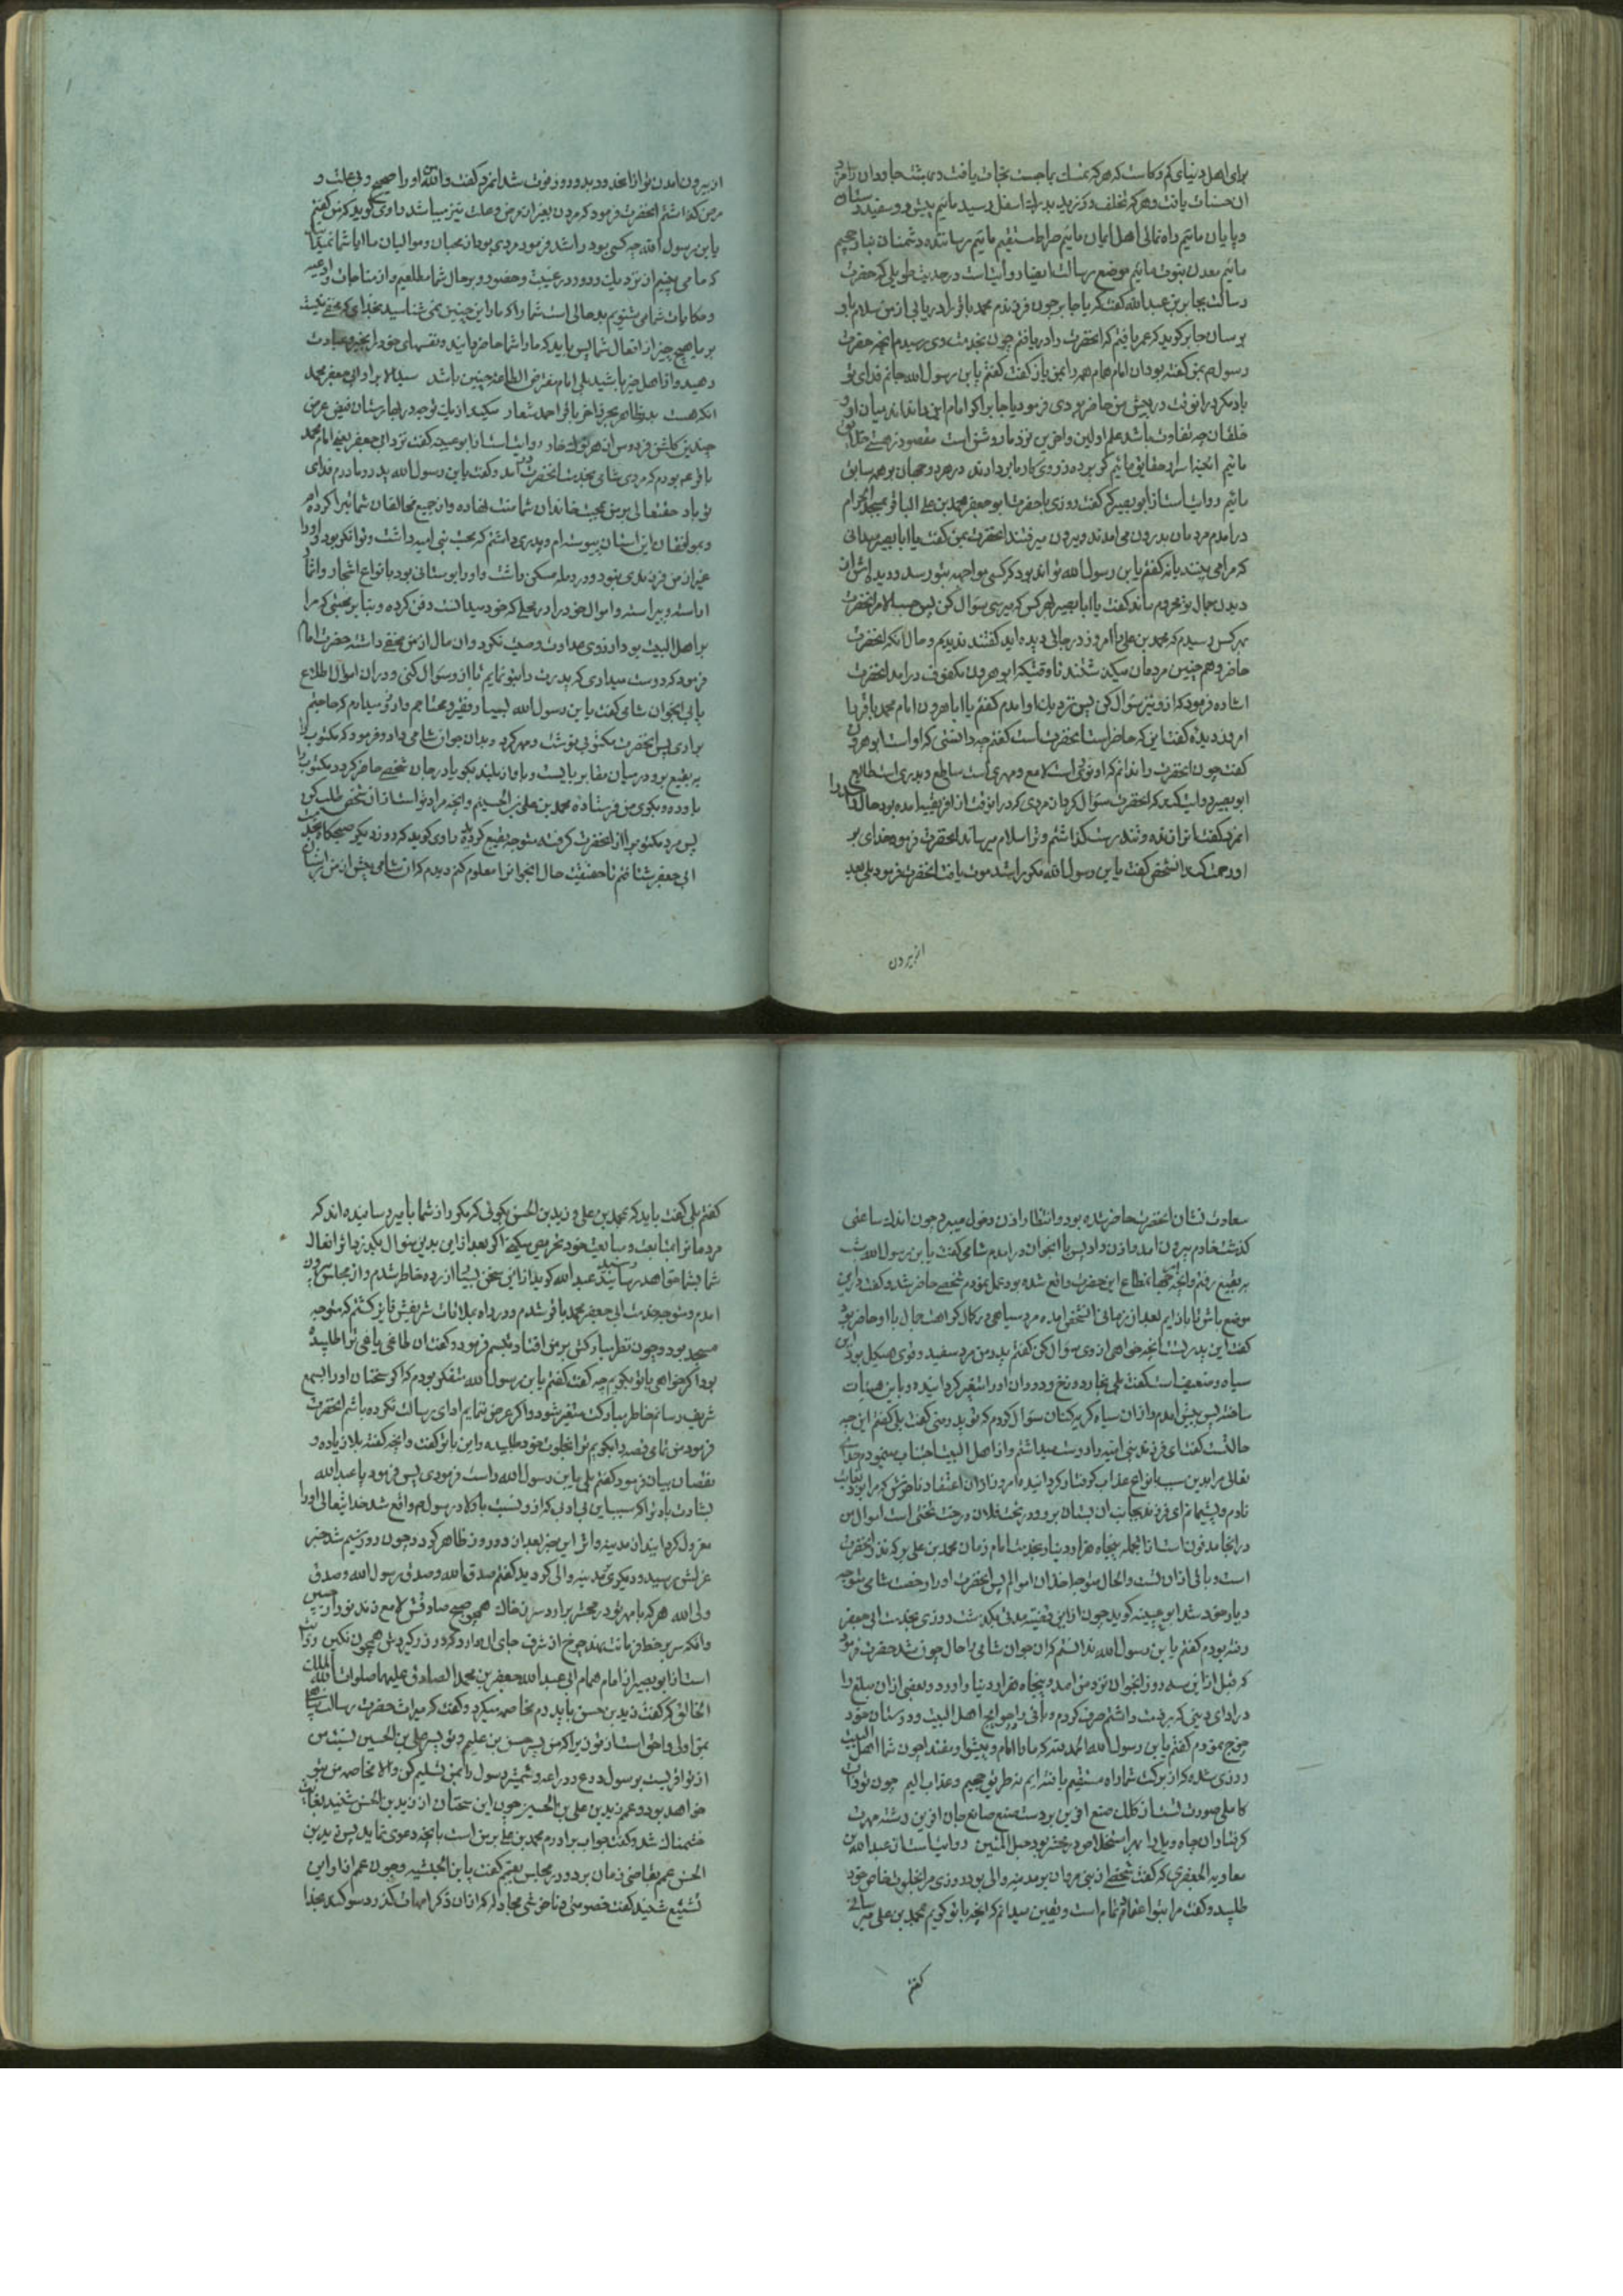 برای اهل دنیای کم و کاست که هر که تمسک بما جست نجات یافت و بهشت جاودان نامزد
ان حسنات یافت و هر که تخلف و کرزید بدرک اسفل رسید مائیم پیش رو سفید دستان
و پایان مائیم راه نمائی اهل ایمان مائیم صراط مستقیم مائیم رساننده دشمنان بنار جحیم
مائیم معدن نبوت مائیم موضع رسالت ایضا روایتست در حدیث طویلی که حضرت
رسالت بجابر بن عبدالله گفت که یا جابر چون فرزندم محمد باقر را دریابی از من سلام باو
برسان جابر گوید که عمر یافتم که انحضرت را دریافتم چون بخدمت وی رسیدم انچه حضرت
رسول بمن گفته بود ان امام همام همه را بمن باز گفت گفتم یا بن رسول الله جانم فدای تو
باد مکر در انوقت در پیش من حاضر بودی فرمود یا جابر اگر امام این را نداند میان او و
خلقان چه تفاوت باشد علم اولین و اخرین نزد ما روشن است مقصود ز هستی خلایق
مائیم ائینه اسرار حقایق مائیم گر پرده ز روی کار ما بردارند در هر دو جهان بر همه سابق
مائیم روایتست از ابو بصیر که گفت روزی با حضرت ابو جعفر محمد بن علی الباقر بمسجد الحرام
در امدم مردمان بدرون می امدند و بیرون میرفتند انحضرت بمن گفت یا ابا بصیر میدانی
که مرا می بینند یا نه گفتم یا بن رسول الله تواند بود که کسی مواجهه بتو رسد و دیده اش از
دیدن جمال تو محروم ماند گفت یا ابا بصیر از هر کس که میرسی سوال کن پس حسب الامر انحضرت
بهر کس رسیدم که محمد بن علی را امروز در جائی دیده اید گفتند ندیدیم و حال انکه انحضرت
حاضر و هم چنین مردمان میکذشتند تا وقتیکه ابو هرون مکفوف در امد انحضرت
اشاره فرمود که از و نیز سوال کن پس نزدیک او امدم گفتم یا ابا هرون امام محمد باقر را
امروز دیده گفت اینکه حاضر است انحضرت است گفتم چه دانستی که او است ابو هرون
گفت چون انحضرت را ندانم که او نوریست لامع و مهریست ساطع و بدریست طالع
ابو بصیر روایت کند که انحضرت سوال کرد از مردی که در انوقت از افریقیه امده بود حال راشد را
انمرد گفت او را زنده و تندرست گذاشتم و ترا سلام میرساند انحضرت فرمود خدای بر
او رحمت کند انشخص گفت یا بن رسول الله مگر راشد موت یافت انحضرت فرمود بلی بعد
از بیرون
از بیرون امدن تو از انحدود بدو روز فوت شد انمرد گفت والله او را صحیح و بی علت و
مرض گذاشتم انحضرت فرمود که مردن بغیر از مرض و علت نیز میباشد راوی گوید که من گفتم
یا بن رسول الله چه کسی بود راشد فرمود مردی بود از محبان و موالیان ما ایا شما نمیدانید
که ما می بینیم از نزدیک و دور در غیبت و حضور و بر حال شما مطلعیم و از مناجات و ادعیه
و حکایات شما می شنویم بد حالی است شما را که ما را این چنین نمی شناسید بخدای که مخفی نیست
بر ما هیچ چیز از افعال شما پس باید که ما را شما حاضر دانید و نفسهای خود را بخیر و عبادت
دهید و از اهل خیر باشید بلی امام مفترض الطاعه چنین باشد سید الابرار ابی جعفر محمد
انکه هست بد بظاهر بحر زاخر باقر احمد شعار میکند از یک توجه در بهارستان فیض عرض
چندین گلشن فردوس از هر نوک خار روایتست از ابو عیینه گفت نزد ابی جعفر یعنی امام محمد
باقر عم بودم که مردی شامی بخدمت انحضرت در امد و گفت یا بن رسول الله پدر و مادرم فدای
تو باد حقتعالی بر من بمحبت خاندان شما منت نهاده و از جمیع مخالفان شما تبرا کرده ام
و بموافقان این استان پیوسته ام و پدری داشتم که بحب بنی امیه داشت و توانگر بود او را
غیر از من فرزندی نبود و در رمله مسکن داشت و او را بوستانی بود بانواع اشجار و اثمار
اراسته و پیراسته و اموال خود را در محلی که خود میدانست دفن کرده و بنا بر محبتی که مرا
بر اهل البیت بود از روی عداوت وصیت نکرد و ان مال از من مخفی داشته حضرت امام
فرمود که دوست میداری که پدرت را بتو نمایم تا از او سوال کنی و در ان اموال اطلاع
یابی انجوان شامی گفت یا بن رسول الله بسیار فقیر و محتاجم و ارزو میدارم که حاجتم
براری پس انحضرت مکتوبی نوشت و مهر کرد و بدان جوان شامی داد و فرمود که مکتوب را
به بقیع برو در میان مقابر بایست و باواز بلند بگو یا درجان شخصی حاضر گردد مکتوب را
باو ده و بگوی من فرستاده محمد بن علی بن الحسینم و انچه مراد تو است از ان شخص طلب کن
پس مرد مکتوب را از انحضرت گرفته متوجه بقیع گردید راوی گوید که روز دیگر صبحگاه بخدمت
ابی جعفر شتافتم تا حقیقت حال انجوان را معلوم کنم دیدم که ان شامی پیش از من بر استان
سعادت نشان انحضرت حاضر شده بود و انتظار اذن دخول میبرد چون اندک ساعتی
گذشت خادم بیرون امد و اذن داد پس با انجوان در امدم شامی گفت یا بن رسول الله شب
به بقیع رفتم و انچه حکم قضا مطاع این حضرت واقع شده بود عمل نمودم شخصی حاضر شد و گفت در این
موضع باش تا باز ایم بعد از زمانی انشخص امده مرد سیاهی در کمال کراهت جمال با او حاضر بود
گفت این پدر تست انچه خواهی از وی سوال کن گفتم پدر من مرد سفید و قوی هیکل بود این
سیاه و ضعیف است گفت بلی بخار دوزخ و دود ان او را متغیر گردانیده و باین هیئات
ساخته پس پیش امدم و از ان سیاه کریه کنان سوال کردم که تو پدر منی گفت بلی گفتم این چه
حالتست گفت ای فرزند بنی امیه را دوست میداشتم و از اهل البیت اجتناب مینمودم خدای
تعالی مرا بدین سبب بانواع عذاب گرفتار گردانیده امروز از ان اعتقاد ناخوش که مرا بود بغایت
نادم و پشیمانم ای فرزند بجانب ان بستان برو و در تحت فلان درخت تختی است اموال من
در انجا مدفون است از انجمله پنجاه هزار دینار بخدمت امام زمان محمد بن علی بر که نذر انحضرت
است و باقی از ان تست و الحال متوجه اخذ ان اموالم پس انحضرت او را رخصت شامی متوجه
دیار خود شد ابو عیینه گوید چون از این قضیه مدتی بگذشت روزی بخدمت ابی جعفر
رفته بودم گفتم یا بن رسول الله ندانستم که ان جوان شامی را حال چون شد حضرت فرمود
که قبل از این سه روز انجوان نزد من امد و پنجاه هزار دینار اورد و بعضی از ان مبلغ را
در ادای دینی که بر ذمت داشتم صرف کردم و باقی را بحوایج اهل البیت و دوستان خود
خرج نمودم گفتم یا بن رسول الله الحمدلله که ما را امام و پیشوا و مقتدا چون شما اهل البیت
روزی شده که از برکت شما راه مستقیم یافته ایم نه طریق جحیم و عذاب الیم چون تو ذات
کاملی صورت نبست از کلک صنع افرین بر دست صنع صانع جان افرین رشته مهرت
گرفتاران چاه ویل را بهر استخلاص در محشر بود حبل المتین روایتست از عبدالله بن
معاویه الجعفری که گفت شخصی از بنی مروان بر مدینه والی بود روزی مرا بخلوت خاص خود
طلبید و گفت مرا بتو اعتماد تمام است و یقین میدانم که انچه با تو گویم بمحمد بن علی میرسانی
گفتم
گفتم بلی گفت باید که بمحمد بن علی و زید بن الحسن بگوئی که مکرر از شما بامیر رسانیده اند که
مردمان را بمتابعت و مبایعت خود تحریص میکنید اگر بعد از این بدین منوال بگذرد اثر افعال
شما بشما خواهد رسید عبدالله گوید از این سخن بسیار ازرده خاطر شدم و از مجلس بیرون
امدم و متوجه خدمت ابی جعفر محمد باقر شدم و در راه بملاقات شریفش فایز گشتم که متوجه
مسجد بود و چون نظر مبارکش بر من افتاد تبسم فرمود و گفت ان طاغی یاغی ترا طلبیده
بود اگر خواهی با تو بگویم چه گفت گفتم یا بن رسول الله متفکر بودم که اگر سخنان او را بسمع
شریف رسانم خاطر مبارکت متغیر شود و اگر عرض ننمایم ادای رسالت نکرده باشم انحضرت
فرمود من تمامی قصه را بگویم ترا بخلوت خود طلبیده و این با تو گفت و انچه گفته بلا زیاده و
نقصان بیان فرمود گفتم بلی یا بن رسول الله راست فرمودی پس فرمود یا عبدالله
بشارت باد ترا که بسبب این بی ادبی که از و نسبت باولاد رسول واقع شد خدایتعالی او را
معزول گردانید از مدینه و اثر این خبر بعد از دو روز ظاهر گردد چون روز سیم شد خبر
عزلش رسید و دیگری بمدینه والی گردید گفتم صدق الله و صدق رسول الله و صدق
ولی الله هر که با مهر تو در محشر برارد سر ز خاک همچو صبح صادقش لامع ز ند نور از جبین
وانکه سر بر خط فرمانت نهد چرخ از شرف جای ان دارد که در زر گیردش همچون نگین روایت
است از ابو بصیر از امام همام ابی عبدالله جعفر بن محمد الصادق علیهما صلوات الله الملک
الخالق که گفت زید بن حسن با پدرم مخاصمه میکرد و گفت که میراث حضرت رسالت پناهی
بمن اولی و احق است از تو زیرا که من پسر حسن بن علیم و تو پسر علی بن الحسین نسبت من
از تو اقربست برسول درع و دراعه و شمشیر رسول را بمن تسلیم کن والا مخاصمه من بتو
خواهد بود و عمم زید بن علی بن الحسین چون این سخنان از زید بن الحسن شنید بغایت
خشمناک شد و گفت جواب برادرم محمد بن علی بر من است بانچه دعوی نماید پس زید بن
الحسن عمم بقاضی زمان برد و در مجلس بعمم گفت یا بن الحبشیه و چون عمم از او این
تشنیع شنید گفت خصومتی و ناخوشی مجادله که از ان ذکر امهات گذرد سوگند بخدا